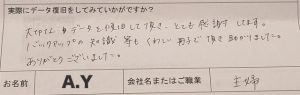 実際にデータ復旧をしてみていかがですか?
大切なデータを復旧して頂き、とても感謝してます。
バックアップの知識等もくわしい冊子で頂き助かりました。
ありがとうございました。
お名前 A.Y 会社名またはご職業 主婦